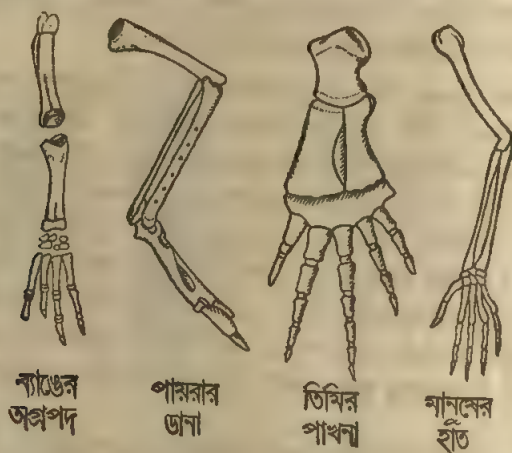 ব্যাঙের
অগ্রপদ
পায়রার
ডানা
তিমির
পাখনা
মানুষের
হাত